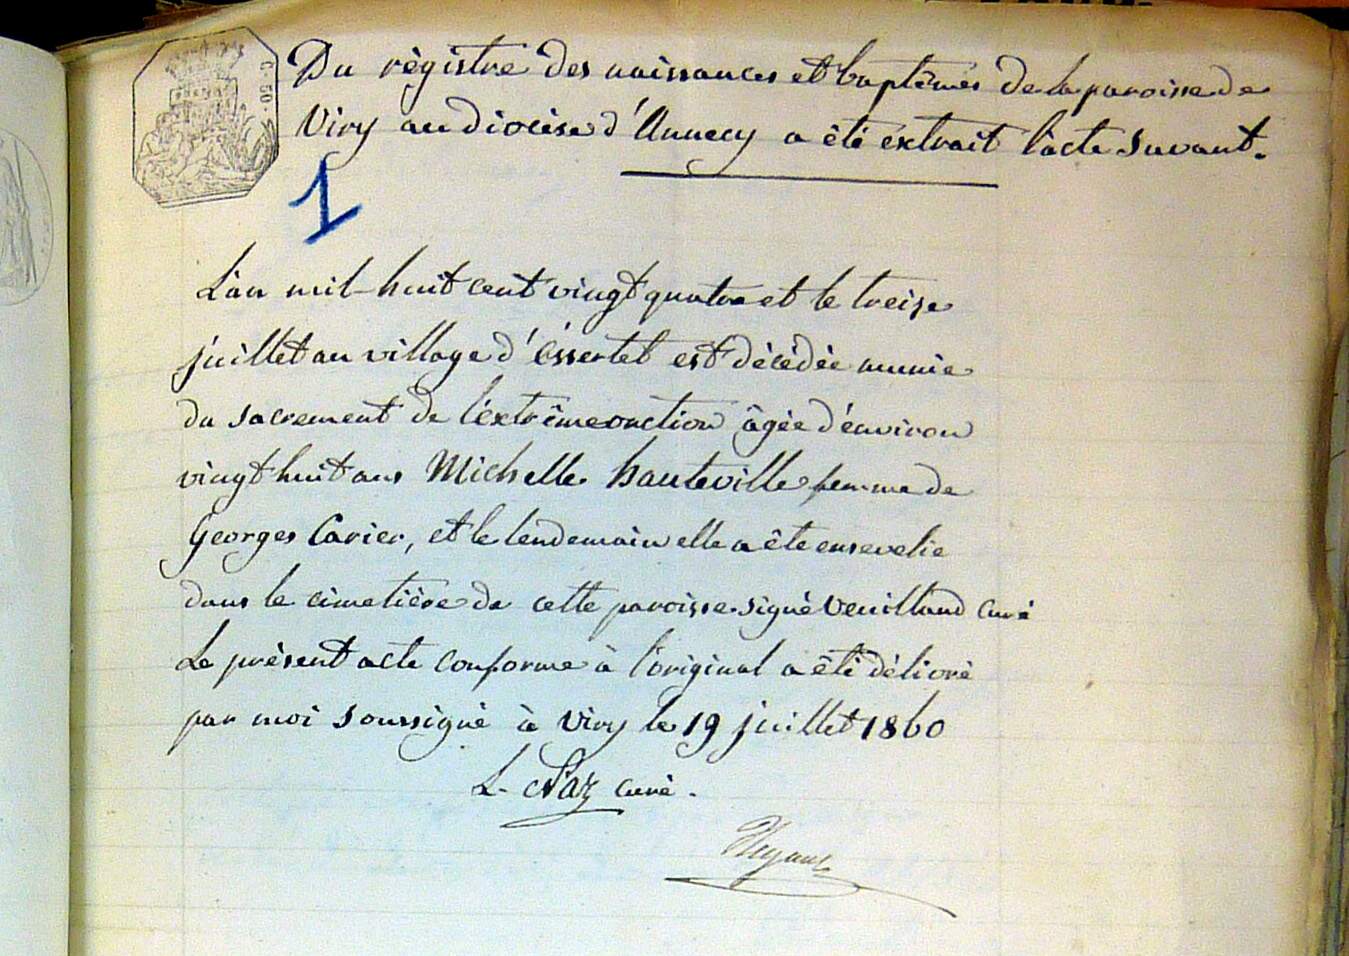 C. 50.
Du règistre des naissances et baptêmes de la paroisse de
Viry au diocèse d'Annecy a êté extrait l'acte suvant.
1
L'an mil-huit cent vingt quatre et le treize
juillet au village d'Essertet est décédée munie
du sacrement de l'éxtrêmeonction âgée d'environ
vingt huit ans Michelle hauteville femme de
Georges Carier, et le lendemain elle a êté ensevelie
dans le cimetière de cette paroisse signé Veuilland curé
Le présent acte conforme à l'original a êté délivré
par moi soussigné à Viry le 19 juillet 1860
L. Naz curé.